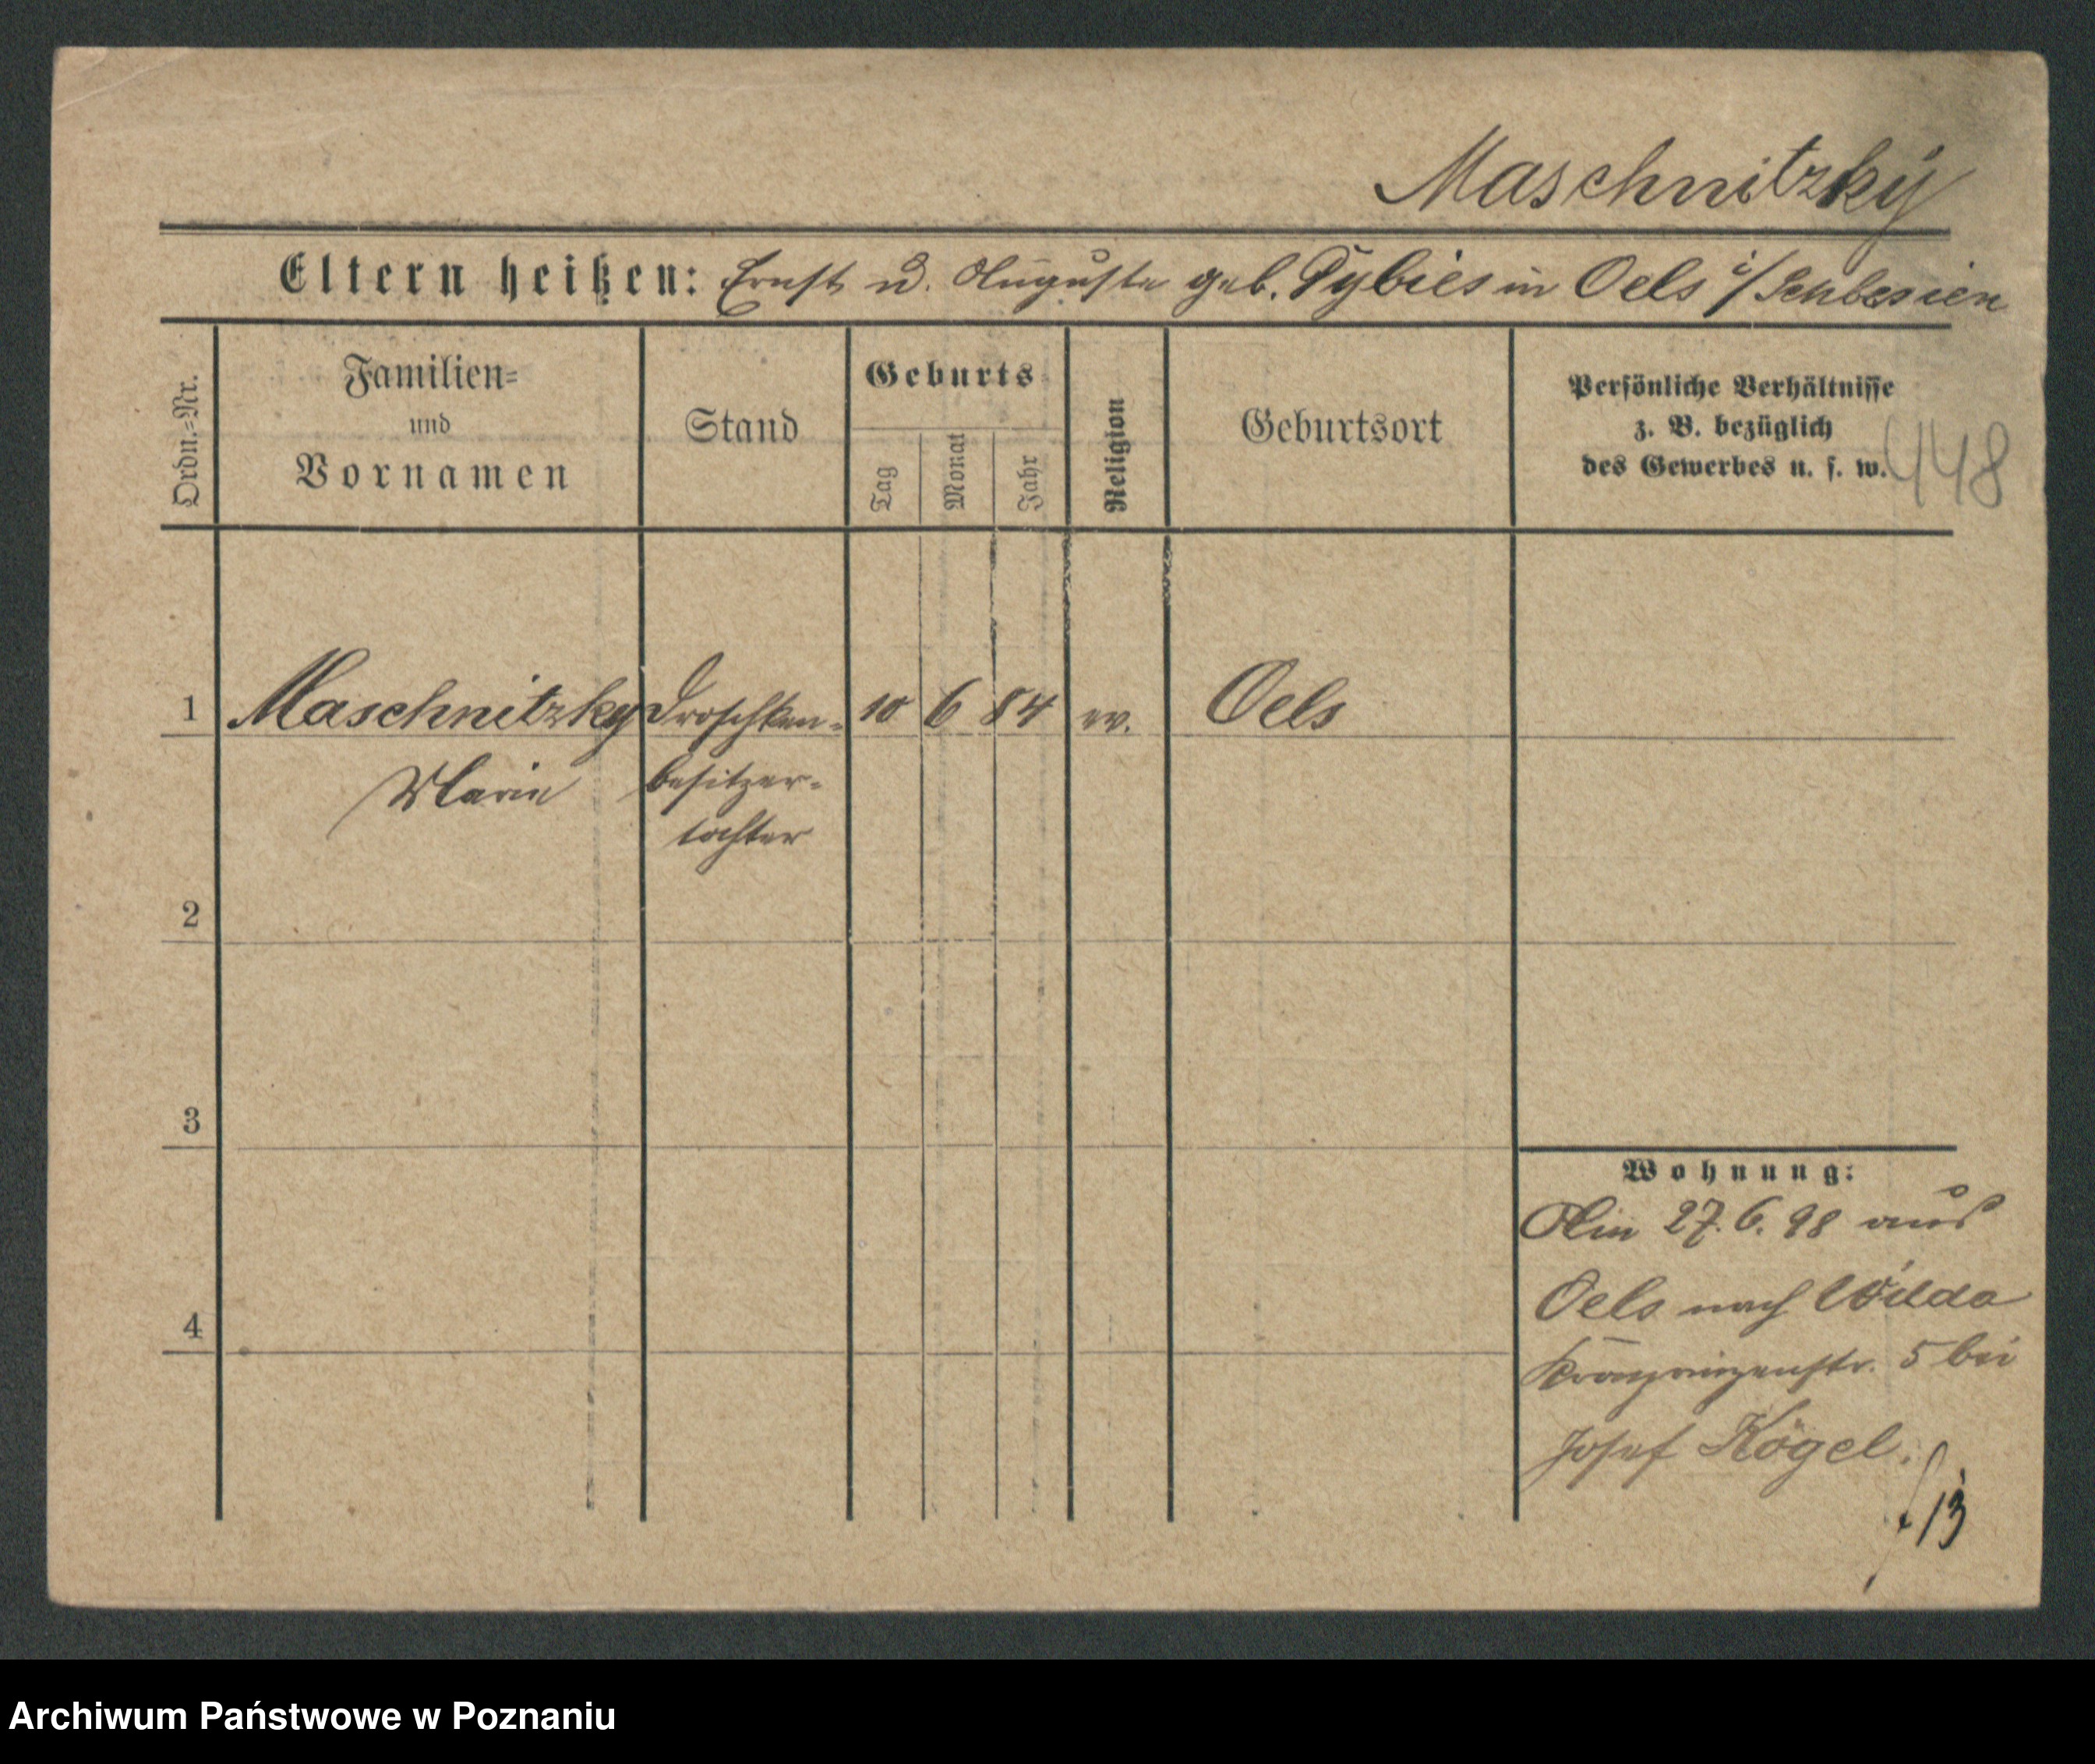 Maschnitzky
Eltern heißen: Ernst u. Auguste geb. Pybies in Oels i/Schlesien
Ordn.-Nr.
Familien-
und
Vornamen
Stand
Geburts
Tag
Monat
Jahr
Religion
Geburtsort
Persönliche Verhältnisse
z. B. bezüglich
des Gewerbes u. s. w.
448
1 Maschnitzky Droschken- 10 6 84 ev. Oels
Marie besitzer-
tochter
2
3
4
Wohnung:
Am 27. 6. 98 aus
Oels nach Wilda
Kronprinzenstr. 5 bei
Josef Kögel.
13
Archiwum Państwowe w Poznaniu